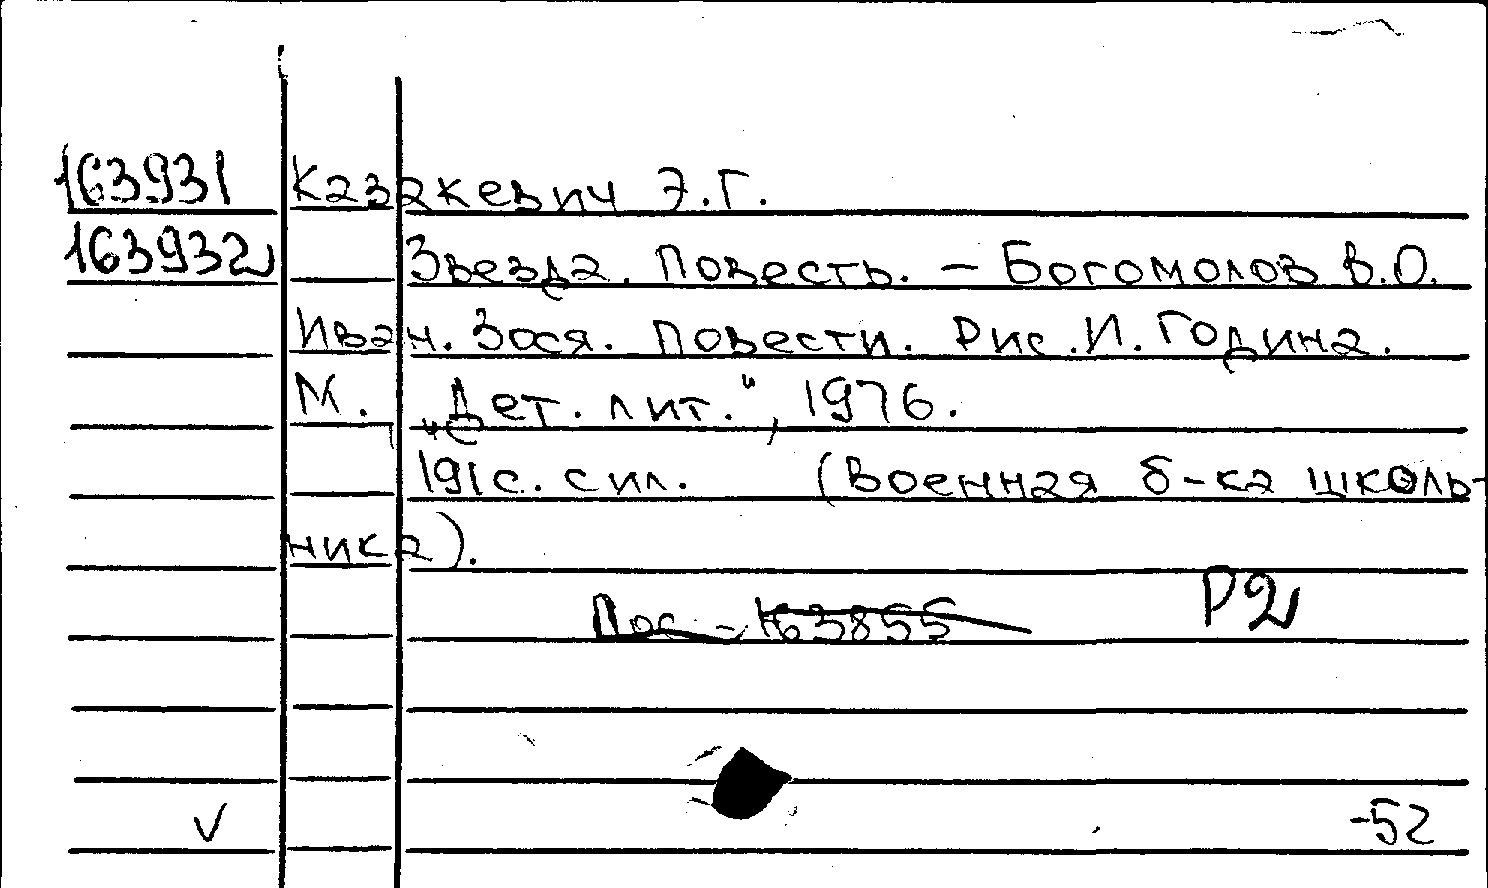 163931 Казакевич Э.Г.
163932 Звезда. Повесть. – Богомолов В.О.
Иван. Зося. Повести. Рис. И. Година.
М. „Дет. лит.“, 1976.
191с. с ил. (Военная б-ка школь-
ника).
163855 Р2
√ -52